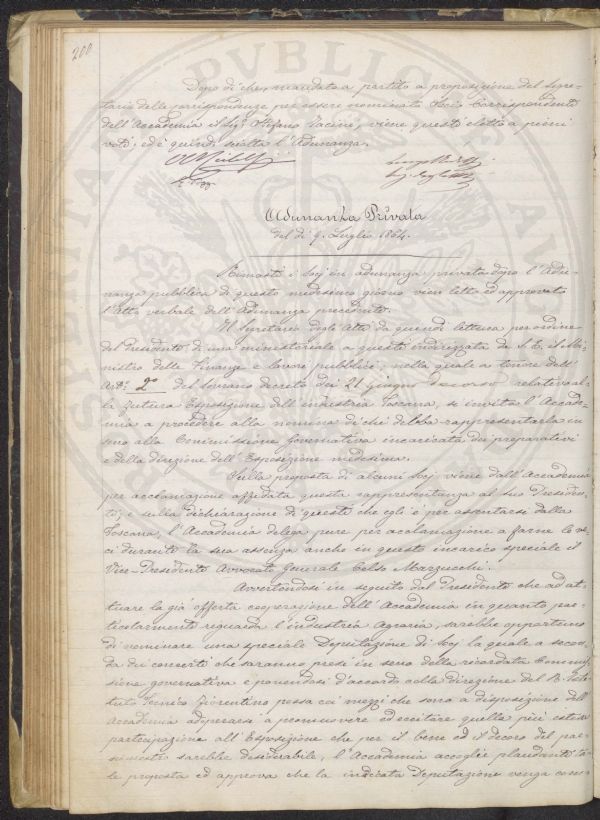 200
Dopo di che, mandato a partito a proposizione del Segre-
tario delle corrispondenze per essere nominato Socio Corrispondente
dell'Accademia il Sigr Stefano Jacini, viene questi eletto a pieni
voti; ed è quindi sciolta l'Adunanza.
Adunanza Privata
del dì 9. Luglio 1864.
Rimasti i Socj in adunanza privata dopo l'Adu-
nanza pubblica di questo medesimo giorno vien letto ed approvato
l'Atto verbale dell'Adunanza precedente.
Il Segretario degli Atti dà quindi lettura per ordine
del Presidente di una ministeriale a questo indirizzata da S. E. il Mi-
nistro delle Finanze e lavori pubblici, nella quale a tenore dell'
Art: 2º del sovrano decreto dei 21 Giugno decorso relativo al-
la futura Esposizione dell'industria Toscana, si invita l'Accade-
mia a procedere alla nomina di chi debba rappresentarla in
seno alla Commissione Governativa incaricata dei preparativi
e della direzione dell'Esposizione medesima.
Sulla proposta di alcuni Socj viene dall'Accademia
per acclamazione affidata questa rappresentanza al suo Presiden-
te; e sulla dichiarazione di questi che egli è per assentarsi dalla
Toscana, l'Accademia delega pure per acclamazione a farne le ve-
ci durante la sua assenza anche in questo incarico speciale il
Vice-Presidente Avvocato Generale Celso Marzucchi.
Avvertendosi in seguito dal Presidente che ad at-
tuare la già offerta cooperazione dell'Accademia in quanto par-
ticolarmente riguarda l'industria Agraria, sarebbe opportuno
di nominare una speciale Deputazione di Socj la quale a secon-
da dei concerti che saranno presi in seno della ricordata Commis-
sione governativa e ponendosi d'accordo colla direzione del R. Isti-
tuto Tecnico Fiorentino possa coi mezzi che sono a disposizione dell'
Accademia adoprarsi a promuovere ed eccitare quella più estesa
partecipazione all'Esposizione che per il bene ed il decoro del pae-
se nostro sarebbe desiderabile, l'Accademia accoglie plaudente ta-
le proposta ed approva che la indicata Deputazione venga com-